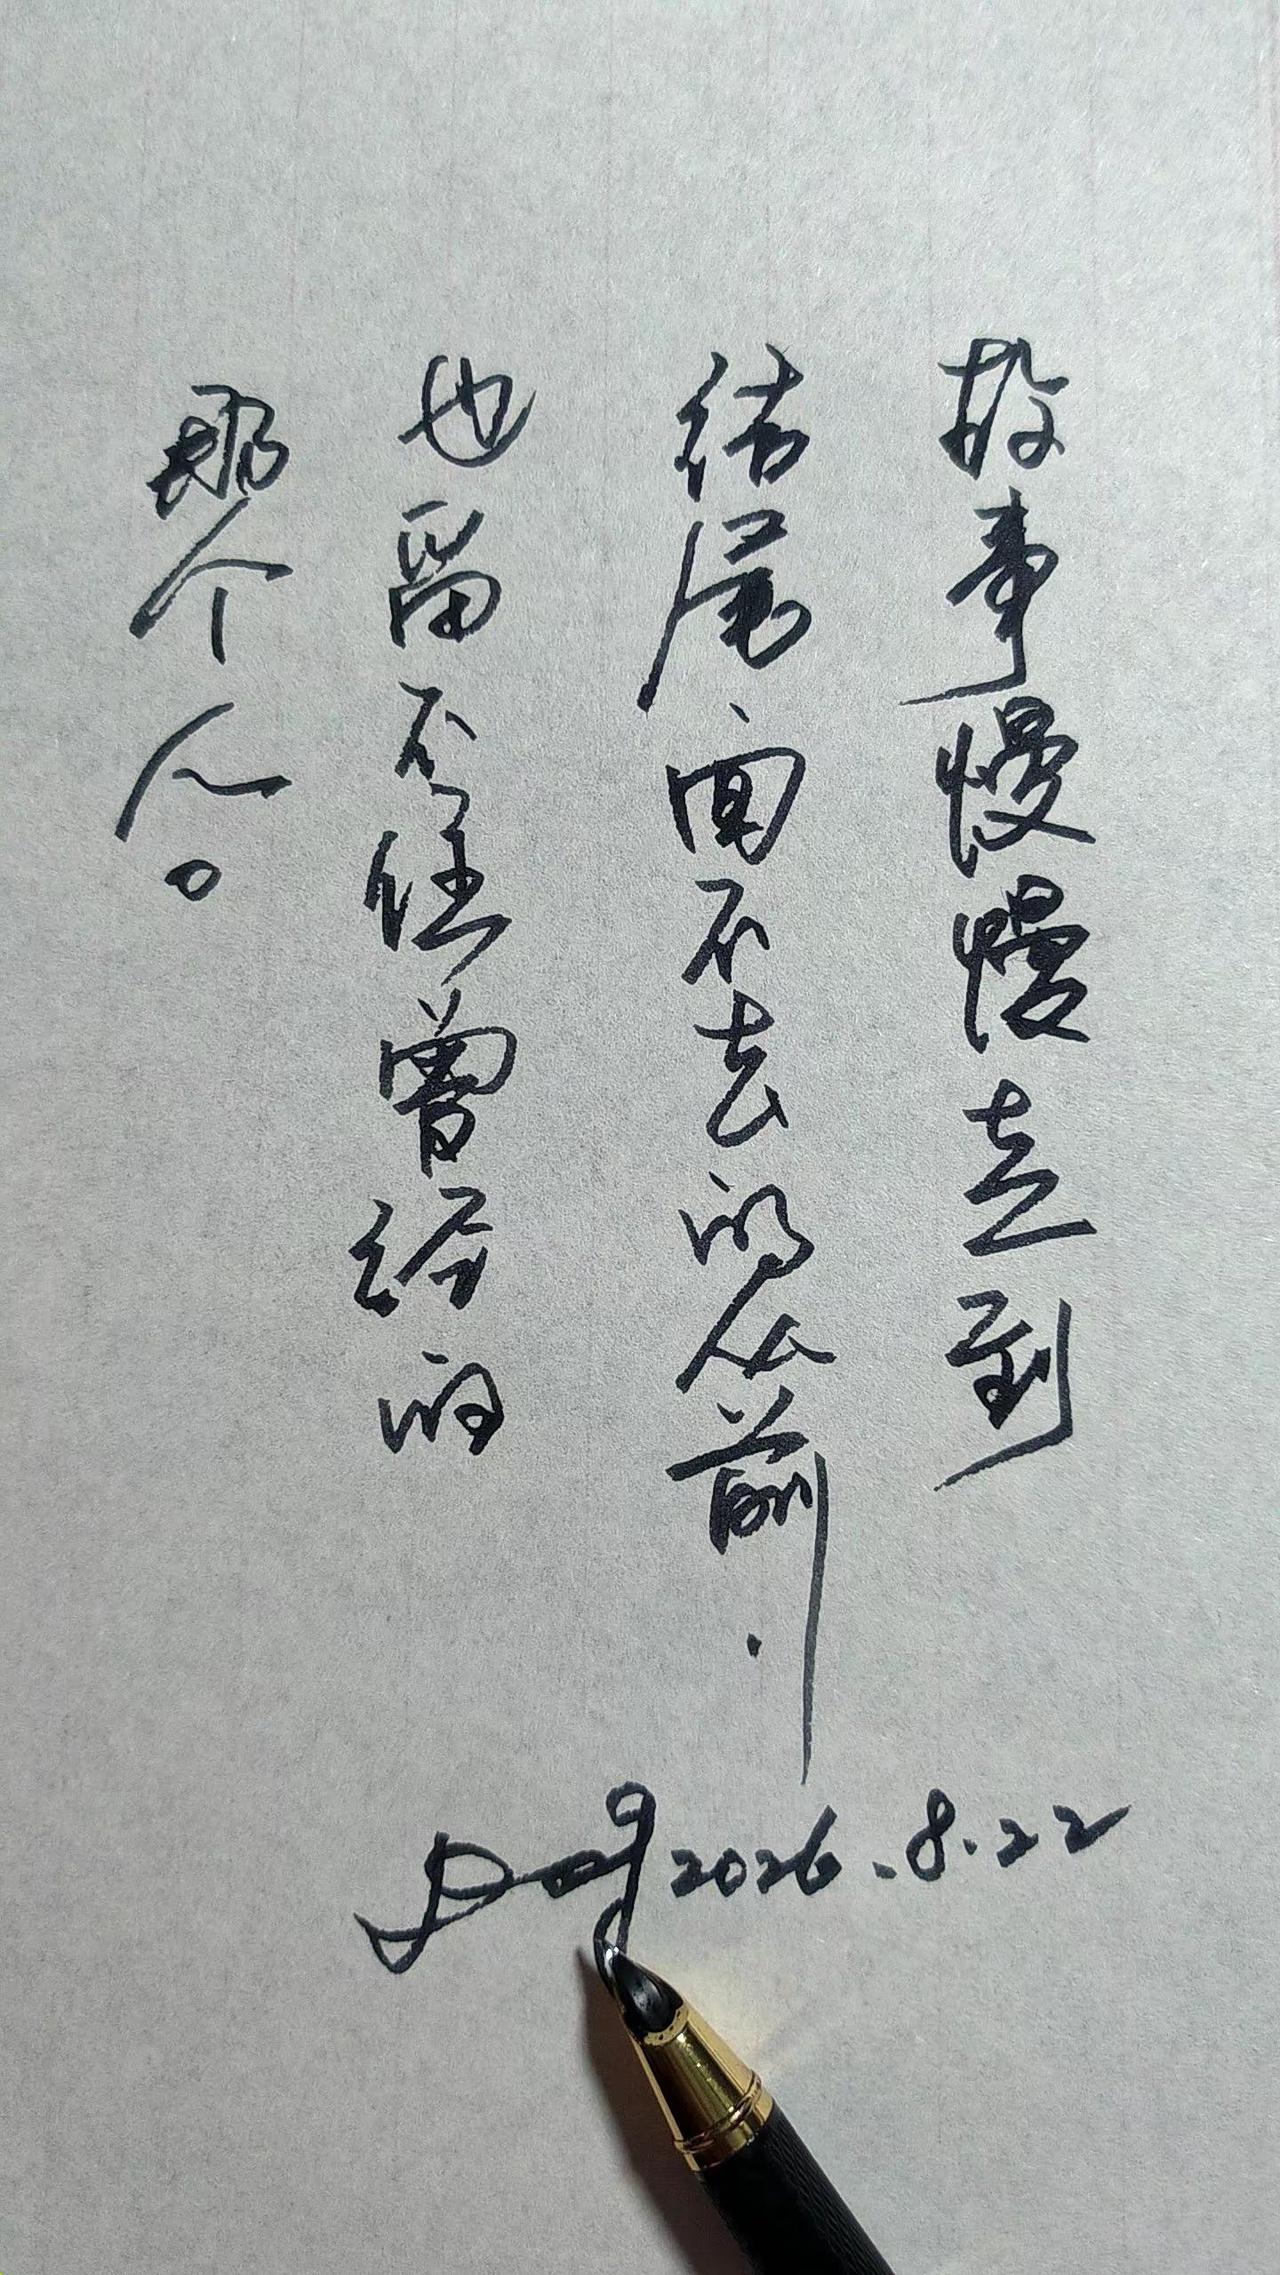 故事慢慢走到
结尾回不去的从前.
也留不住曾经的
那个人。
2026.8.22